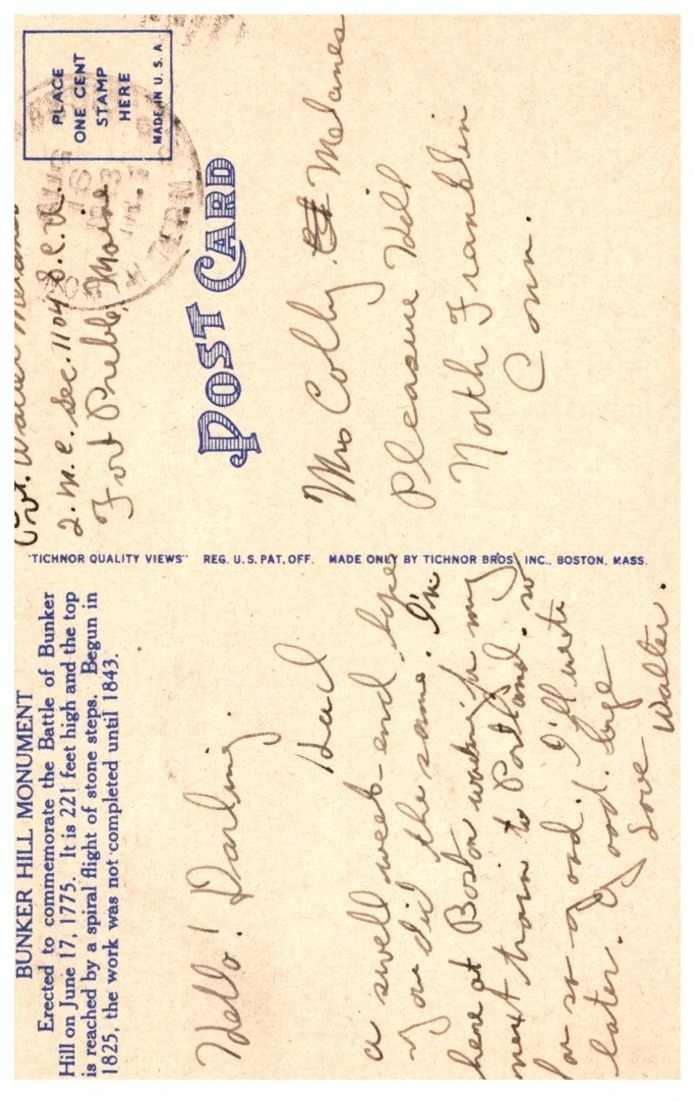 BUNKER HILL MONUMENT
Erected to commemorate the Battle of Bunker
Hill on June 17, 1775. It is 221 feet high and the top
is reached by a spiral flight of stone steps. Begun in
1825, the work was not completed until 1843.
Hello! Darling.
Had
a swell week-end, hope
you did the same. I'm
here at Boston waiting for my
next train to Portland. so
far so good. I'll write
later. Good bye
Love
Walter.
"TICHNOR QUALITY VIEWS" REG. U.S. PAT. OFF. MADE ONLY BY TICHNOR BROS. INC., BOSTON, MASS.
Pvt. Walter
2. M.C. Sec. 1104 S.C.U.
Fort Preble, Maine
PLACE
ONE CENT
STAMP
HERE
MADE IN U.S.A.
POST CARD
Mrs Colby Melanes
Pleasure Hill
North Franklin
Conn.